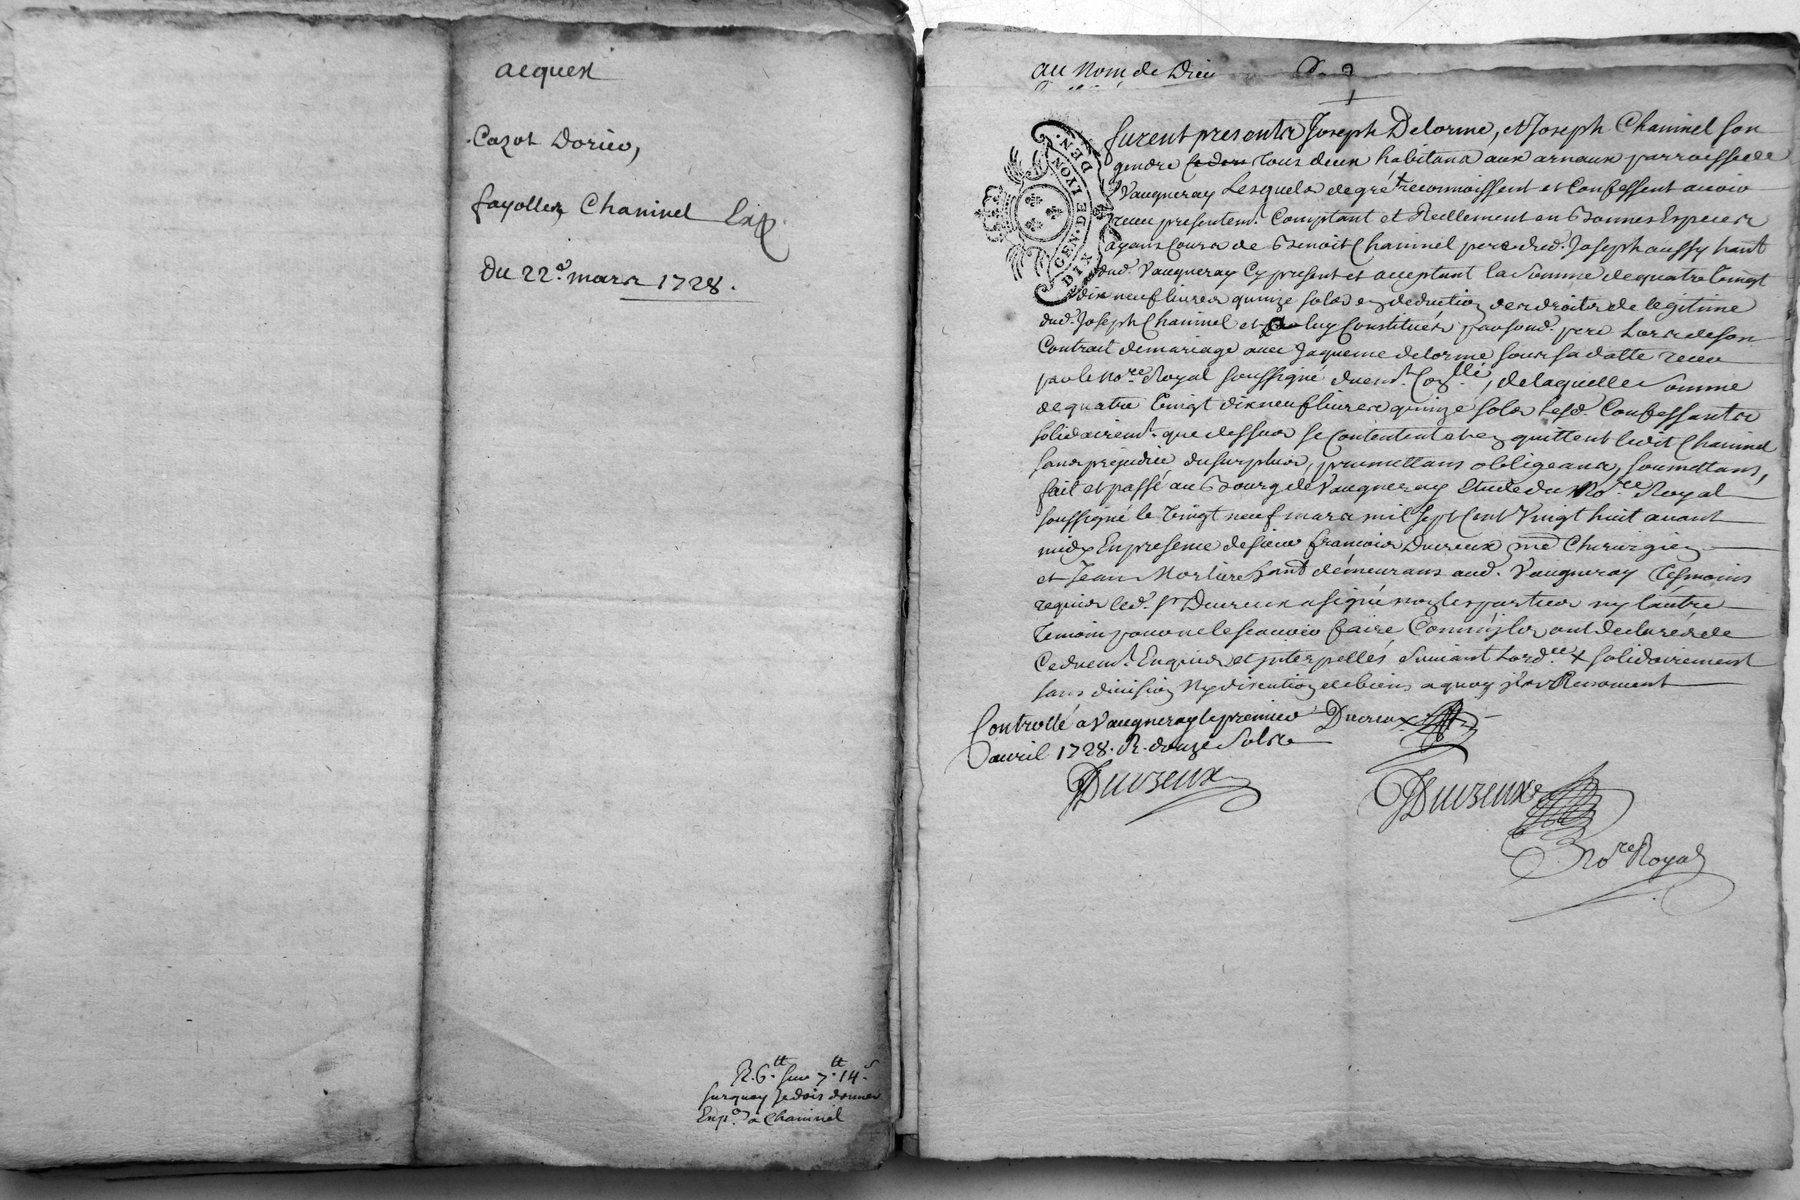 acquex
Cazot Dorieu,
fayolles, Chaninel Exp.
Du 22e. mars 1728.
R. 6tt sur 7tt 14s
surquoy Je dois donner
Exp.on a Chaninel
au Nom de Dieu
GEN. DE LYON DIX DEN.
furent presents Joseph Delorme, et Joseph Chaninel son
gendre tous deux habitans aux arnaux parroisse de
Vaugneray Lesquels de gré reconnoissent et Confessent avoir
receu presentemt. Comptant et Reellement en Bonnes Especes
ayans Cours de Benoit Chaninel pere dud. Joseph aussy hant
dud. Vaugneray Cy present et acceptant la Somme de quatre vingt
dix neuf livres quinze sols en deduction des droits de legitime
dud. Joseph Chaninel et a luy Constitués par sond. pere Lors de son
Contrait de mariage avec Jaqueme delorme sous sa datte receu
par le nore. Royal soussigné duemt. Collé, de laquelle Somme
de quatre vingt dix neuf livres quinze sols Lesd. Confessants
solidairemt. que dessus se Contentent et en quittent ledit Chaninel
sans prejudice du surplus, promettans obligeans, soumettans,
fait et passé au Bourg de Vaugneray Etude du Nore. Royal
soussigné le vingt neuf mars mil sept Cent Vingt huit avant
midy En presence de sieur francois Ducreux me Chirurgien
et Jean Morliere hant demeurans aud. Vaugneray tesmoins
requis led. Sr Ducreux a signé non les parties ny lautre
temoin pour ne le scavoir faire Comm'jls ont declarés de
Ce duemt. Enquis et jnterpellés suivant Lordce + solidairement
sans division Ny discution de biens a quoy jls Renoncent
Controllé a Vaugneray le premier
avril 1728. R. douze Sols
Ducreux
Ducreux
Ducreux
Nore Royal